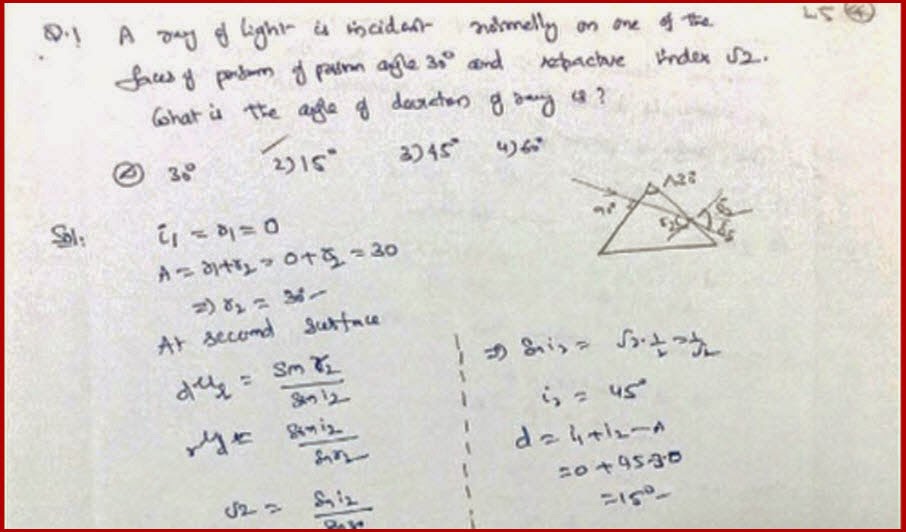 L5 4
Q.1 A ray of light is incident normally on one of the
faces of prism of prism angle 30° and refractive index √2.
What is the angle of deviation of ray is?
30° 2) 15° 3) 45° 4) 60°
A=30°
90°
r2
Sol:
i1 = r1 = 0
A = r1+r2 = 0+r2 = 30
⇒ r2 = 30
At second surface
dμr = Sin r2 / Sin i2
rμd = Sin i2 / Sin r2
√2 = Sin i2 / Sin 30
⇒ Sin i2 = √2·1/2 = 1/√2
i2 = 45°
d = i1+i2-A
=0+45-30
=15°